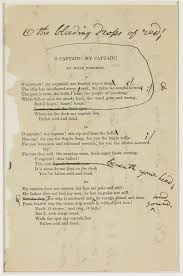 O the bleeding drops of red!
O CAPTAIN! MY CAPTAIN!
BY WALT WHITMAN.
I
O CAPTAIN! my captain! our fearful trip is done;
The ship has weathered every rack, the prize we sought is won;
The port is near, the bells I hear, the people all exulting,
While follow eyes the steady keel, the vessel grim and daring.
But O heart! heart! heart!
Where on the deck my captain lies,
Fallen cold and dead.
II
O captain! my captain! rise up and hear the bells;
Rise up! for you the flag is flung, for you the bugle trills;
For you bouquets and ribboned wreaths, for you the shores
For you they call, the swaying mass, their eager faces turning.
O captain! dear father!
This arm
It is some dream that on the deck
You've fallen cold and dead.
beneath your head,
III
My captain does not answer, his lips are pale and still;
My father does not feel my arm, he has no pulse nor will.
and
sound,
From fearful trip the victor ship comes in with object won!
Exult, O shores! and ring, O bells!
But I, with
Walk the spot my captain lies
Fallen cold and dead.